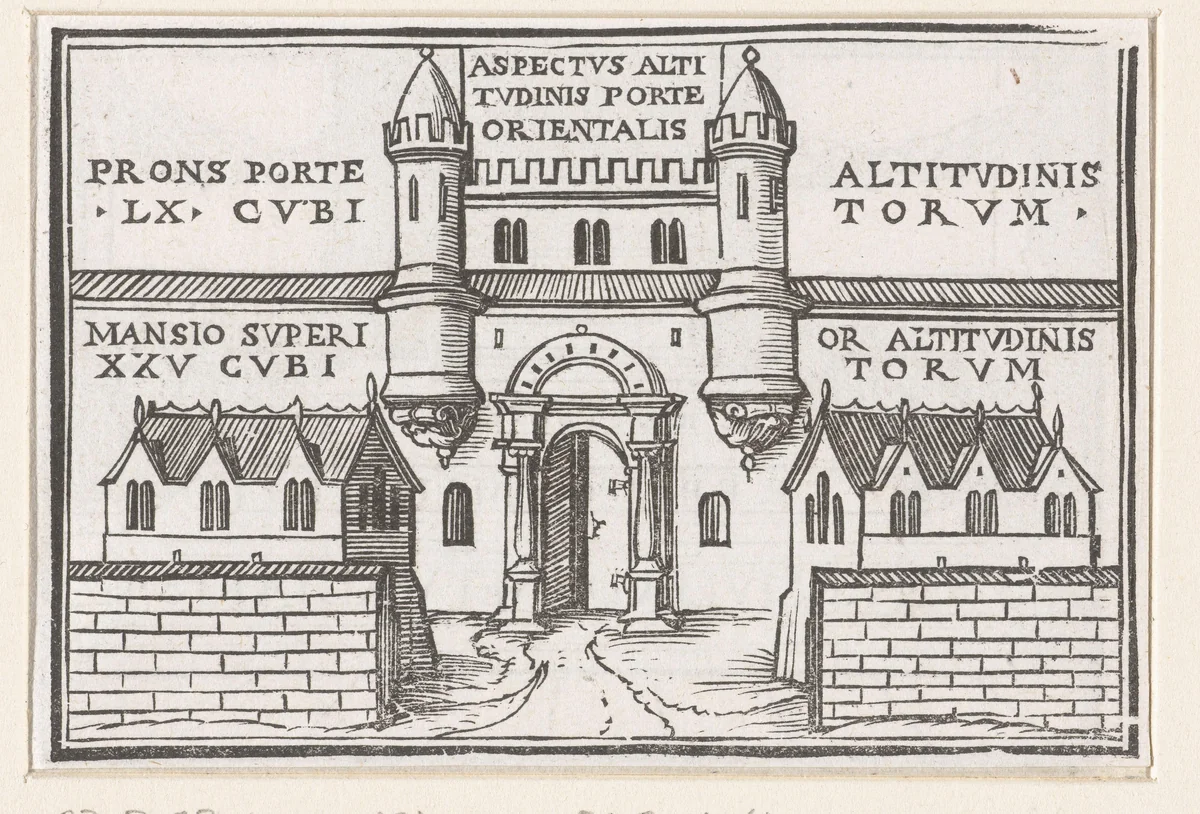 ASPECTVS ALTI
TVDINIS PORTE
ORIENTALIS
PRONS PORTE
LX CVBI
ALTITVDINIS
TORVM
MANSIO SVPERI
XXV CVBI
OR ALTITVDINIS
TORVM